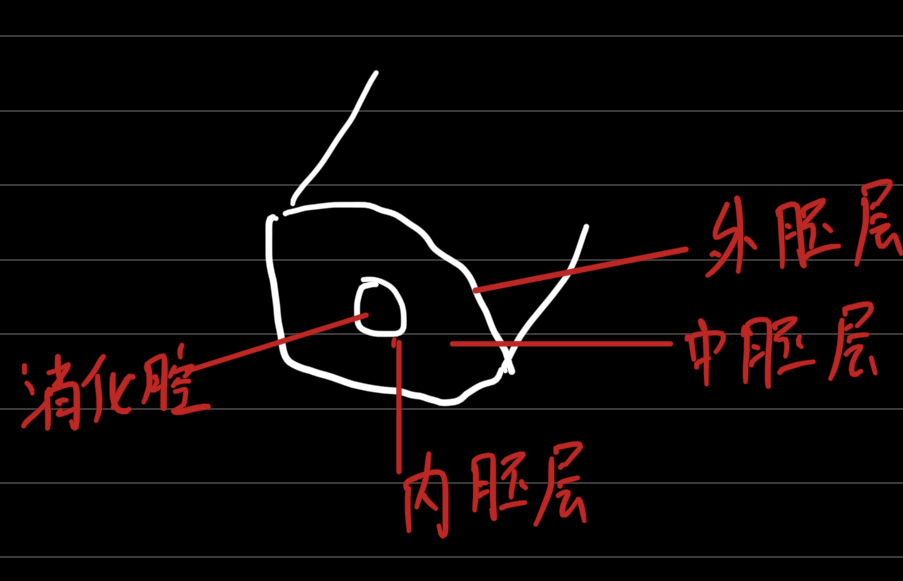 外胚层
中胚层
消化腔
内胚层